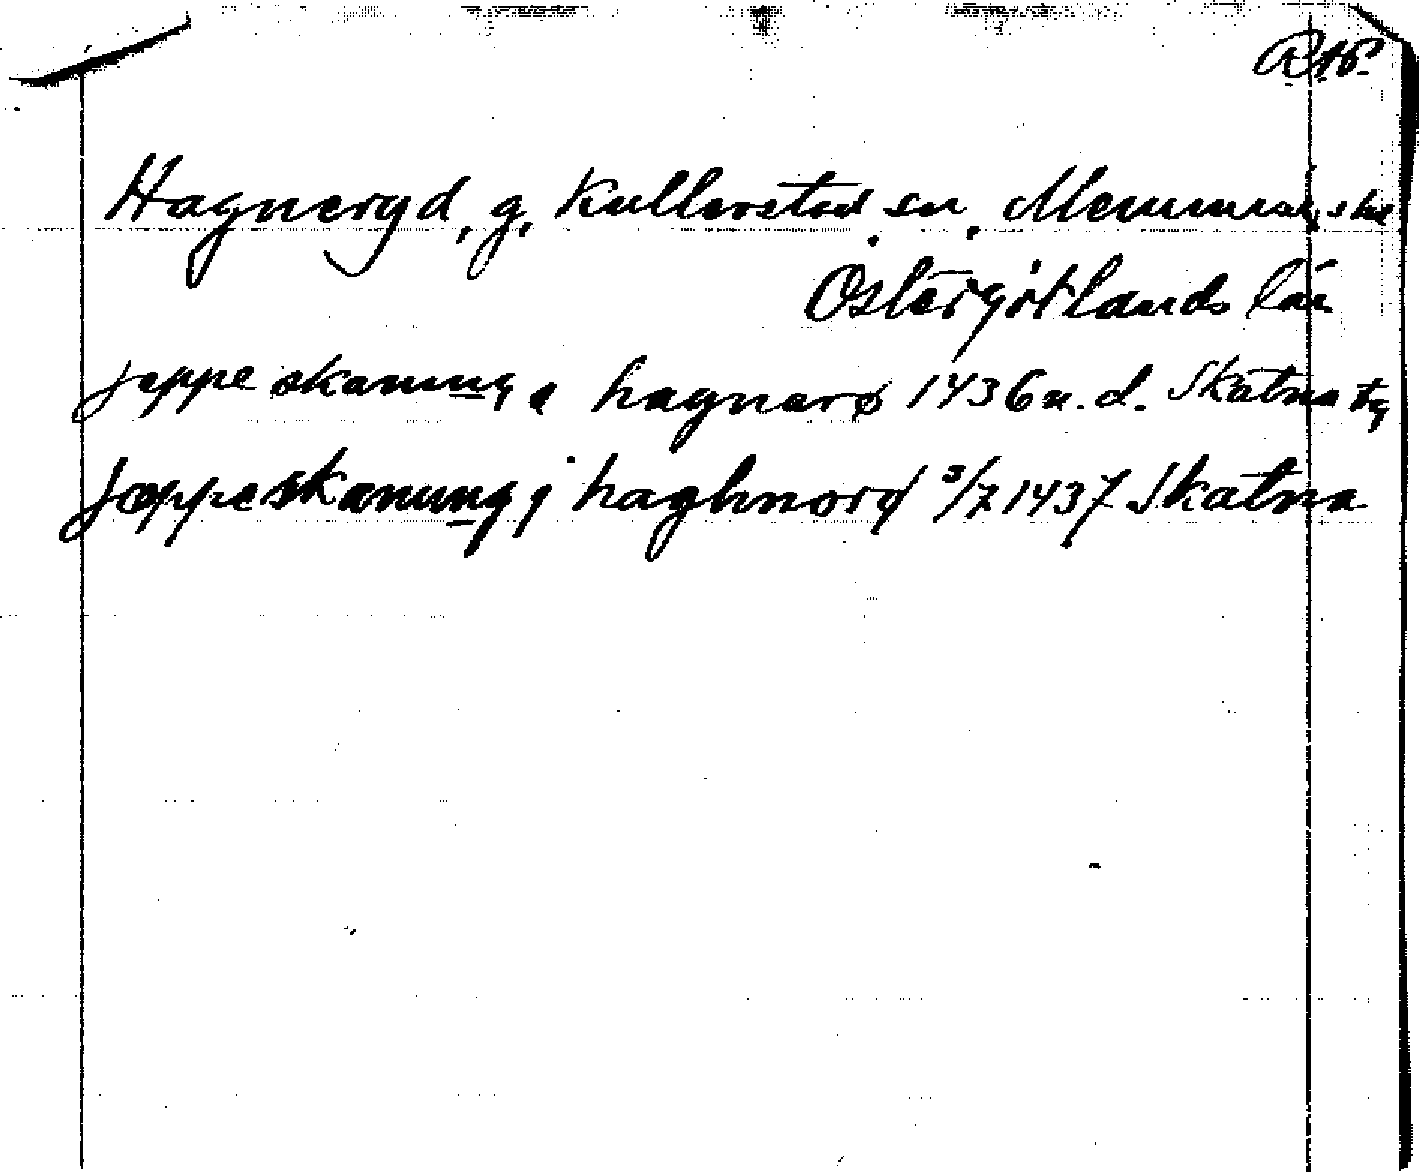 Hagneryd, g. Kullerstad sn, Memmings hd
Östergötlands län
jeppe skanung a hagnarø 1436 u. d. Skatna tg
Jæppe skanung j haghnoryd 3/7 1437 Skatna